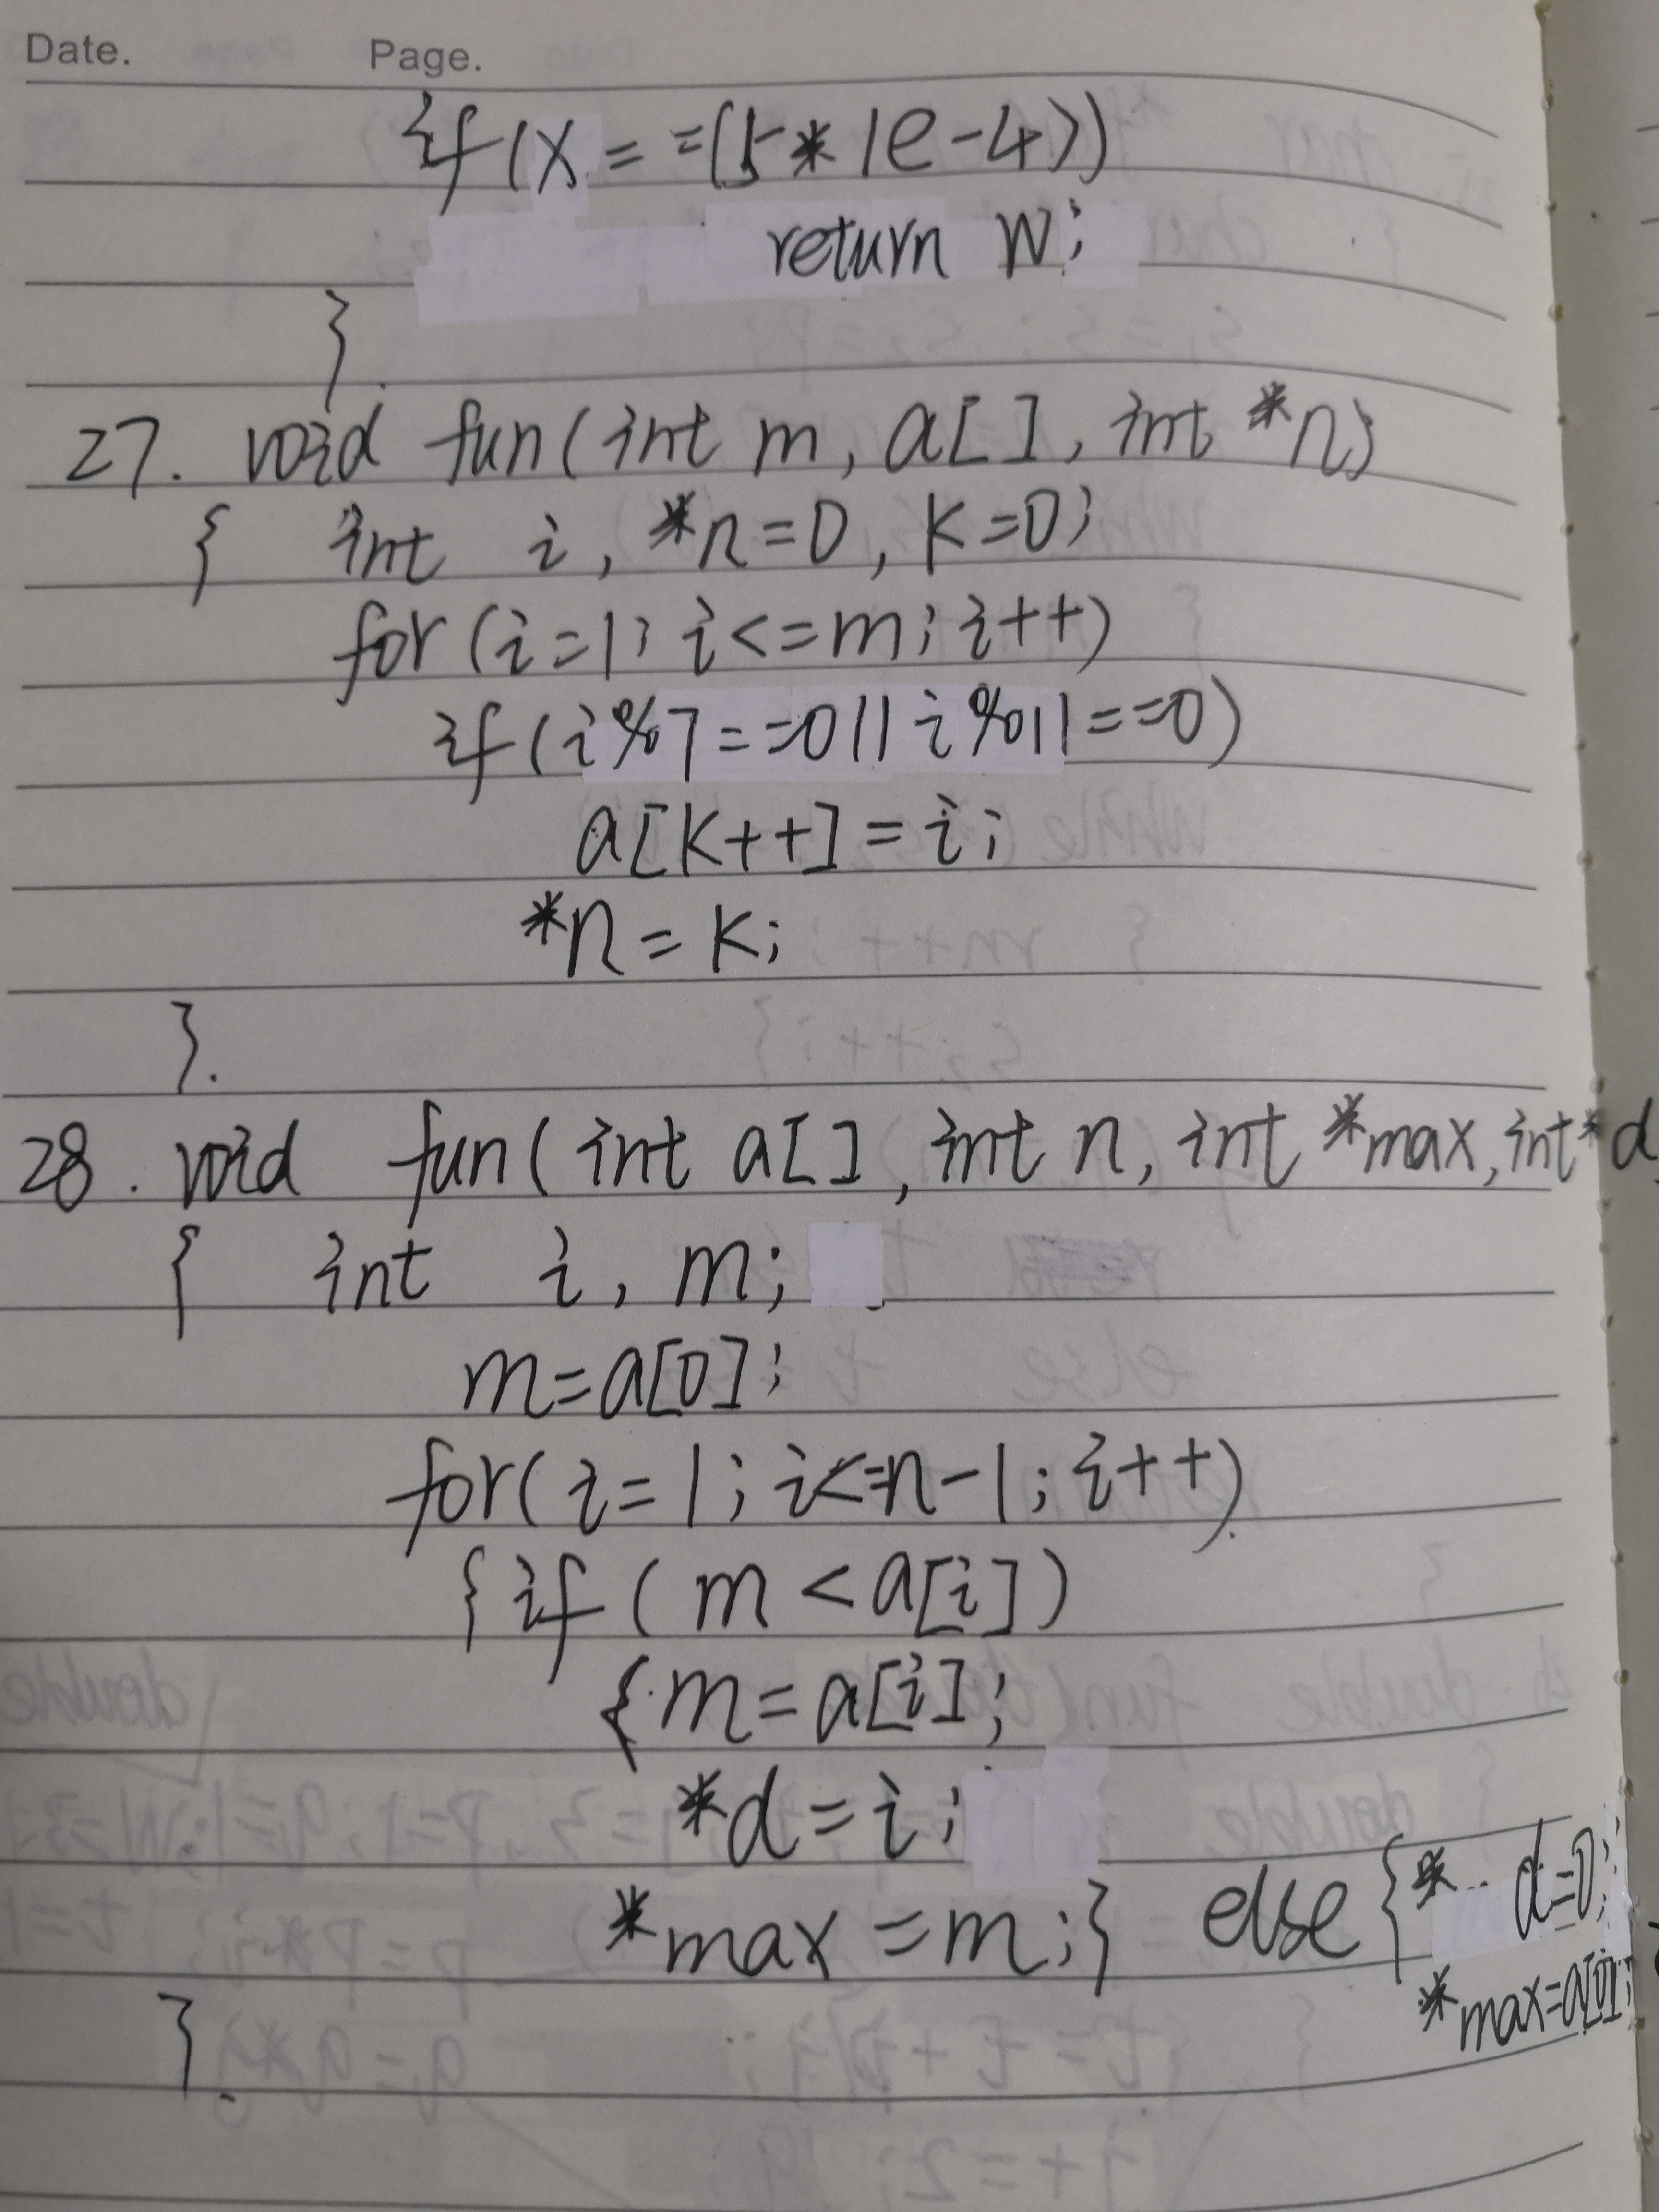 Date. Page.
if(x==(5*1e-4))
return w;
}.
27. void fun(int m, a[], int *n)
{ int i, *n=0, k=0;
for(i=1; i<=m; i++)
if(i%7==0||i%11==0)
a[k++]=i;
*n=k;
}.
28. void fun(int a[], int n, int *max, int *d
{ int i, m;
m=a[0];
for(i=1; i<=n-1; i++)
{if(m<a[i])
{m=a[i];
*d=i;
*max=m;} else{* d=0;
*max=a[0];
}.